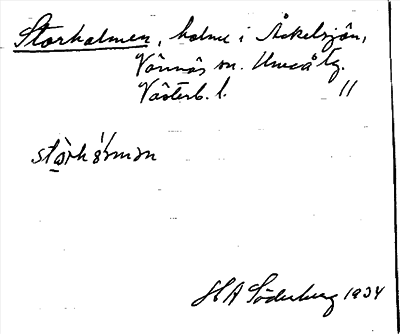 Storholmen, holme i Åckelsjön,
Vännäs sn. Umeå tg.
Västerb. l. 11
HA Söderberg 1934